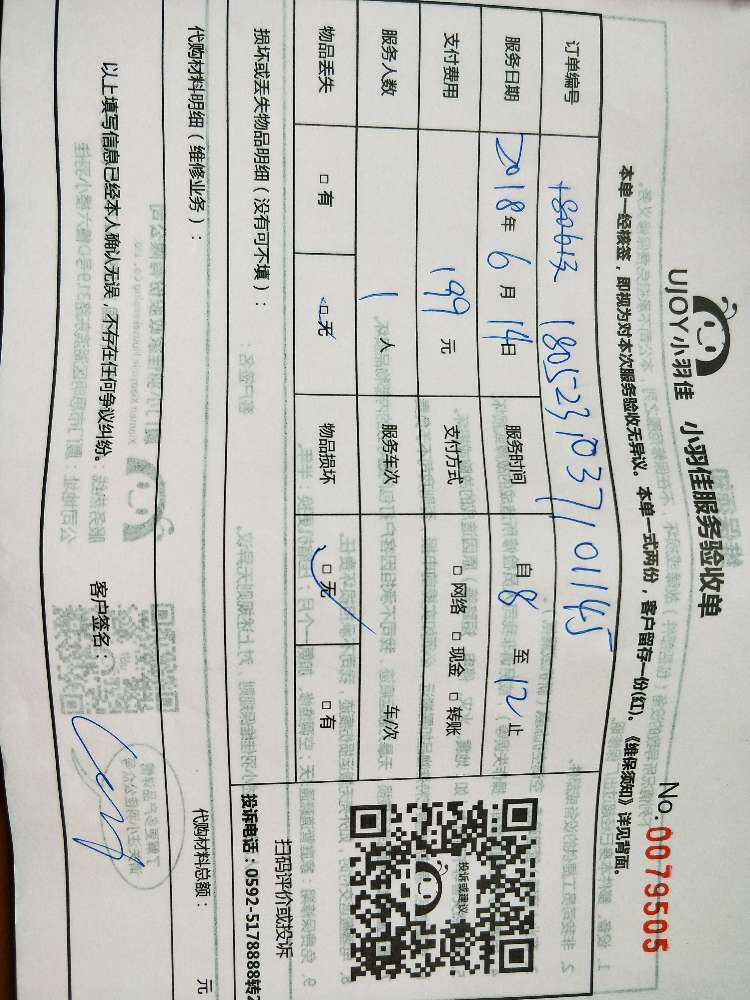 UJOY小羽佳 小羽佳服务验收单
No. 0079505
本单一经核签，即视为对本次服务验收无异议。本单一式两份，客户留存一份(红)。《维保须知》详见背面。
订单编号 180523103710 1145
服务日期 2018年 6月 14日 服务时间 自8 至 12止
支付费用 199 元 支付方式 □网络 □现金 □转账
服务人数 1 人 服务车次 车/次
物品丢失 □有 □无 物品损坏 □无 □有
投诉或建议
扫码评价或投诉
投诉电话：0592-5178888转2
损坏或丢失物品明细（没有可不填）：
代购材料明细（维修业务）：
代购材料总额： 元
以上填写信息已经本人确认无误，不存在任何争议纠纷。 客户签名：